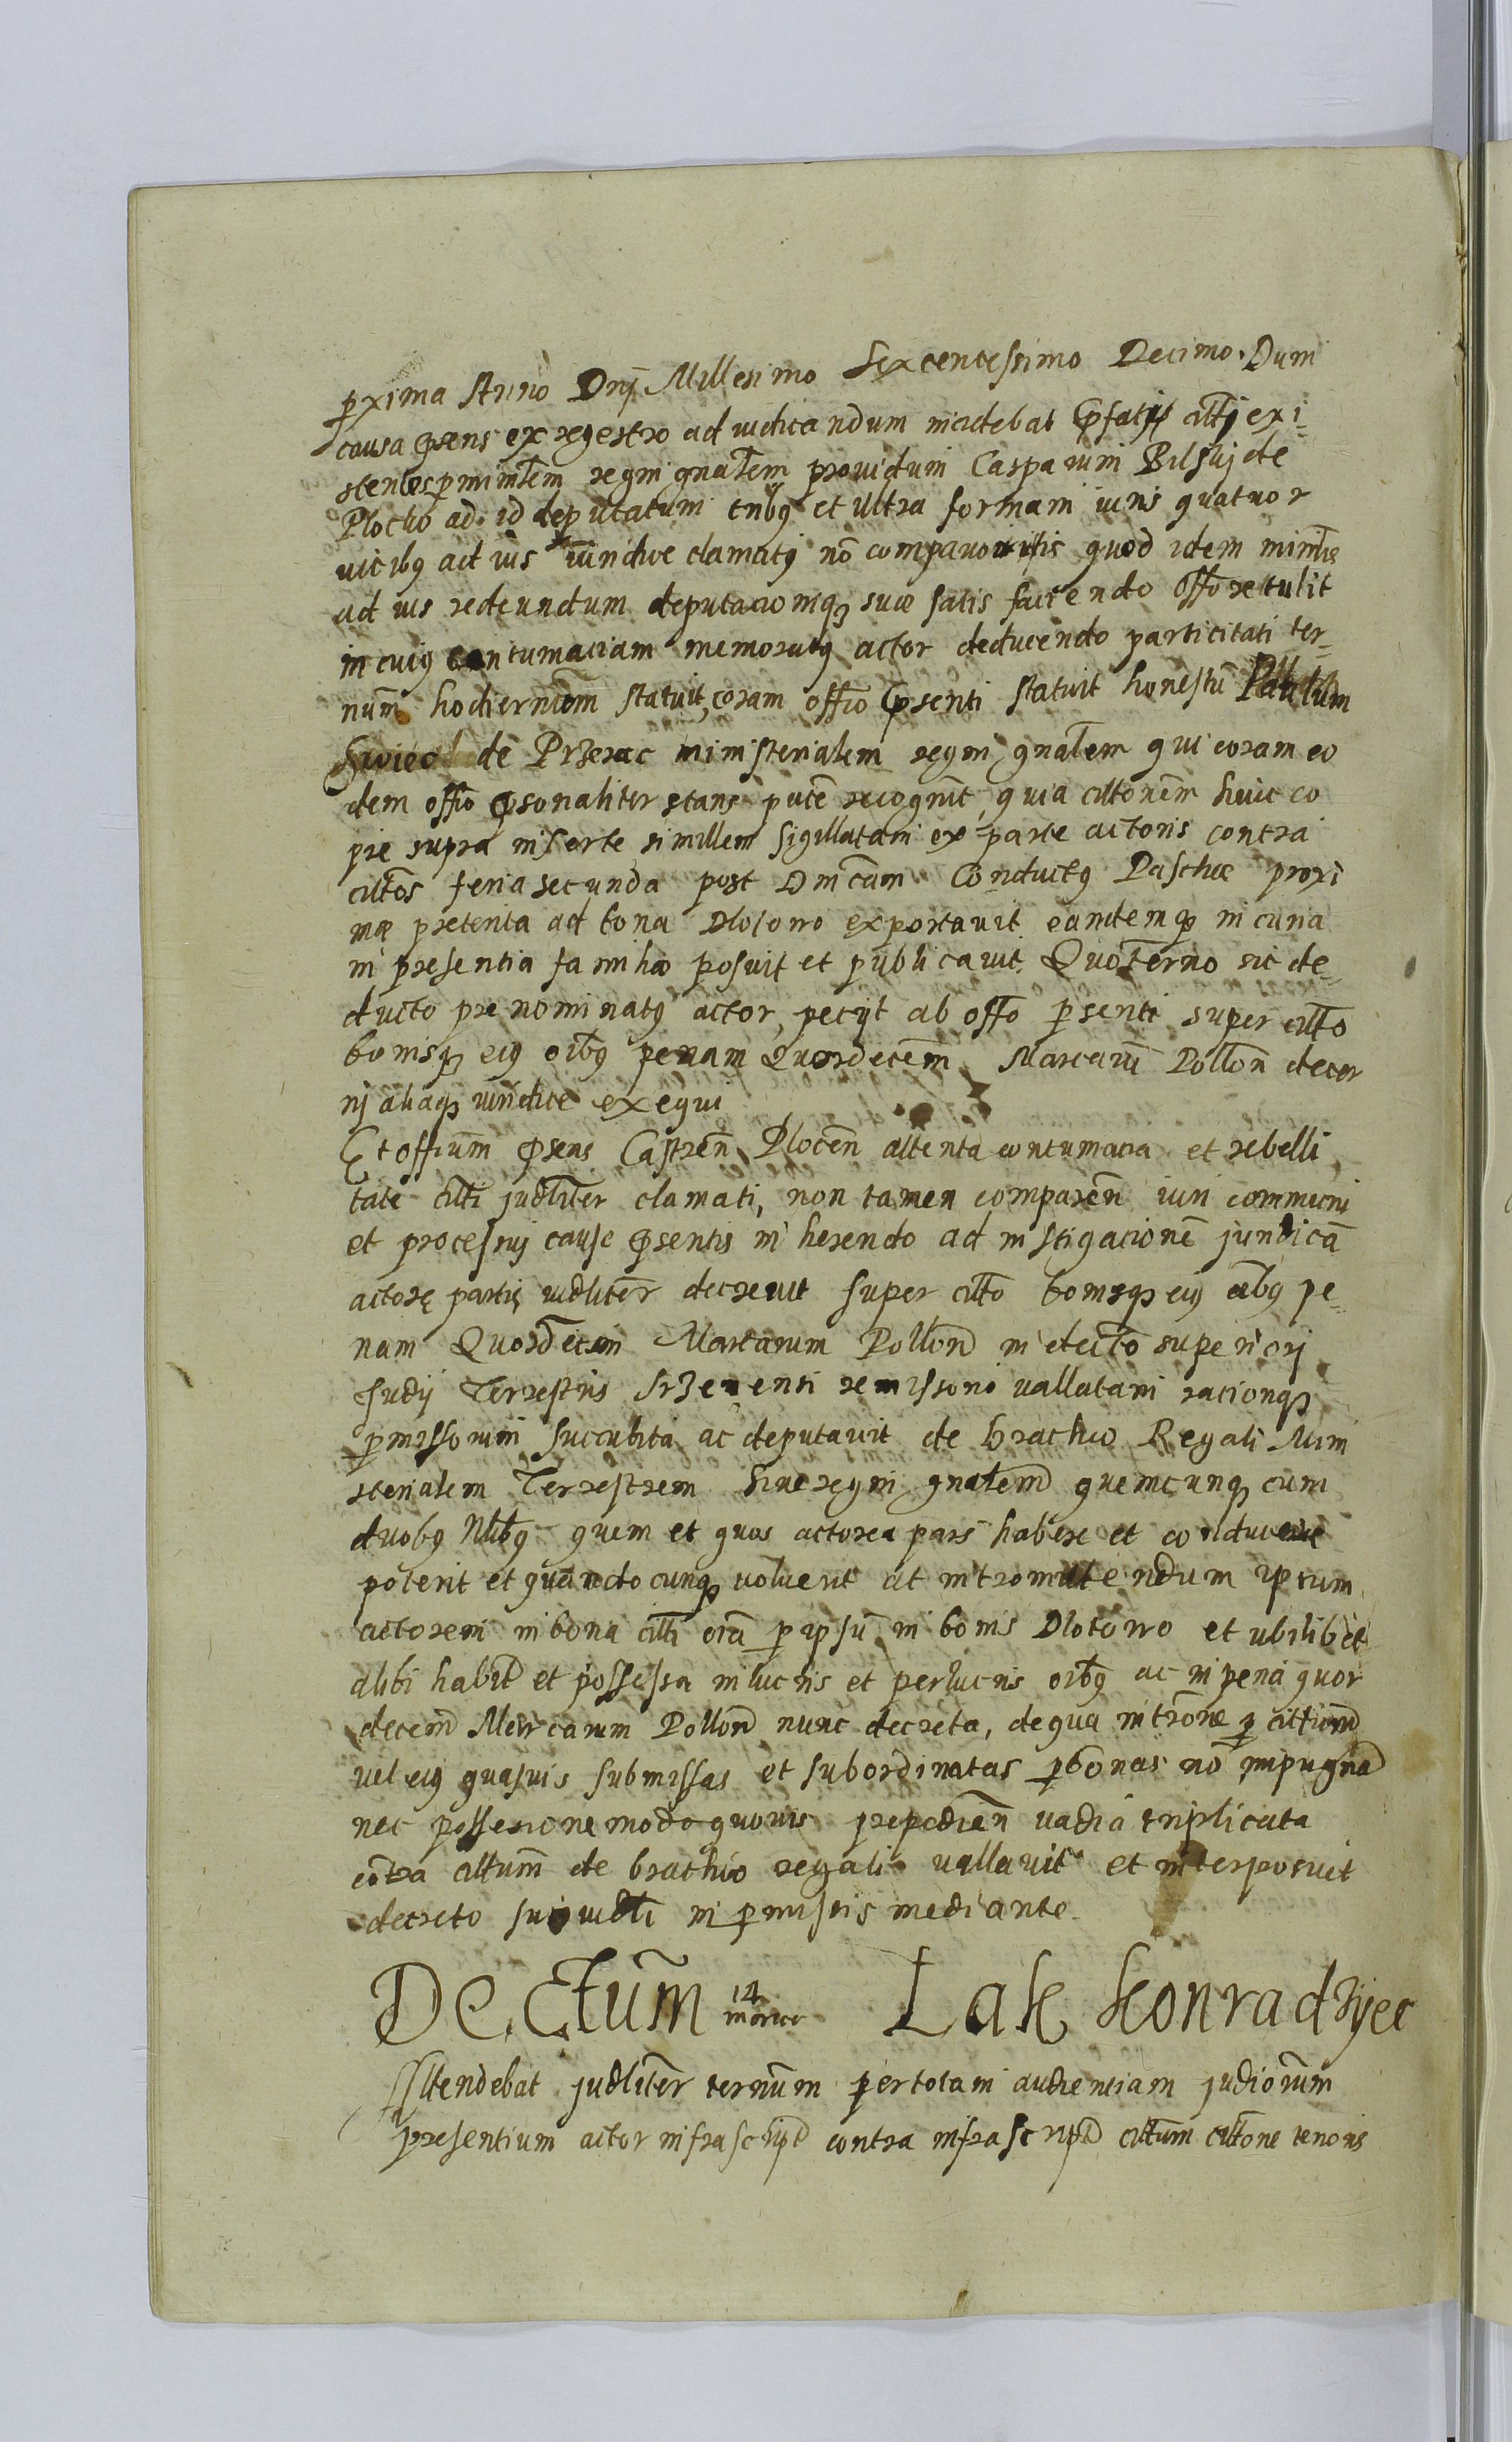 pxima Anno Dnj Millesimo Sexcentessimo Decimo. Dum
causa psens ex regestro ad iudicandum incidebat pfatj cittj exi-
stentes p minrlem regni gnalem prouidum Casparum Bilskj de
Plocko ad id deputatum tribq et ultra formam iuris quatuor
uicibq ad ius iuridice clamatq nō comparuit quod idem minrlis
ad ius redeundum deputacioniqz suae satis faciendo offo retulit
in cuiq contumaciam memoratq actor deducendo particitati ter-
num hodiernum statuit, coram offio psenti statuit honestū Paulum
de Przerac ministerialem regni gnalem qui coram eo
dem offio psonaliter stans putē recognit, quia cittonem huic co
pie supra inserte simillem sigillatam ex parte actoris contra
cittos feria secunda post Dnicam Conductq Paschae proxi
mae preterita ad bona Dlotowo exportauit eandemqz in curia
in presentia familiae posuit et publicauit. Quo termo sic de-
ducto prenominatq actor, petijt ab offo psenti super citto
bonisqz eiq oibq penam Quordecem Marcarū Pollon decer
nj aliaqz iuridice exequi
Et offium psens Castren Plocen attenta contumacia et rebelli
tate citti judliter clamati, non tamen comparen iuri communi
et processuj cause psentis in herendo ad instigacionē juridicā
actoree partis iudliter decreuit super citto bonisqz eiq oibq pe-
nam Quordecim Marcarum Pollon in defecto superiorj
Judij Terrestris Srzenensi remissorio vallatam rationeqz
pmissorum succubita ac deputauit de brachio Regali Mini
sterialem Terrestrem siue regni gnalem quemcunqz cum
duobq Nlibq quem et quos actorea pars habere et conducere
poterit et quandocunqz voluerit at intromittendum ipsum
actorem in bona citti oiā p ipsū in bonis Dlotowo et ubilibet
alibi habit et possessa in lucris et perlucris oibq ac in pena quor
decem Marcarum Pollon nunc decreta, de qua intrōne p cittum
vel eiq quasuis submissas et subordinatas psonas nō impugnad
nec possesione modo quouis prepedien vadia triplicata
cōtra cittum de brachio regali vallauit et interposuit
decreto suo iudli in pmissis mediante
Dectum 14 marce Lak Konradzyec
Attendebat judliter termum per totam audientiam judiorum
presentium actor infrascript contra infrascript cittum cittone tenoris